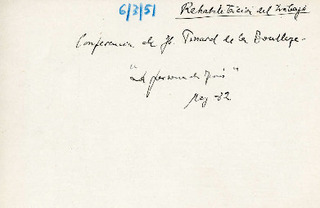 6/3/51 Rehabilitación del trabajo
Conferencia de H. Pinard de la Boullaye.
"La persona de Jesús"